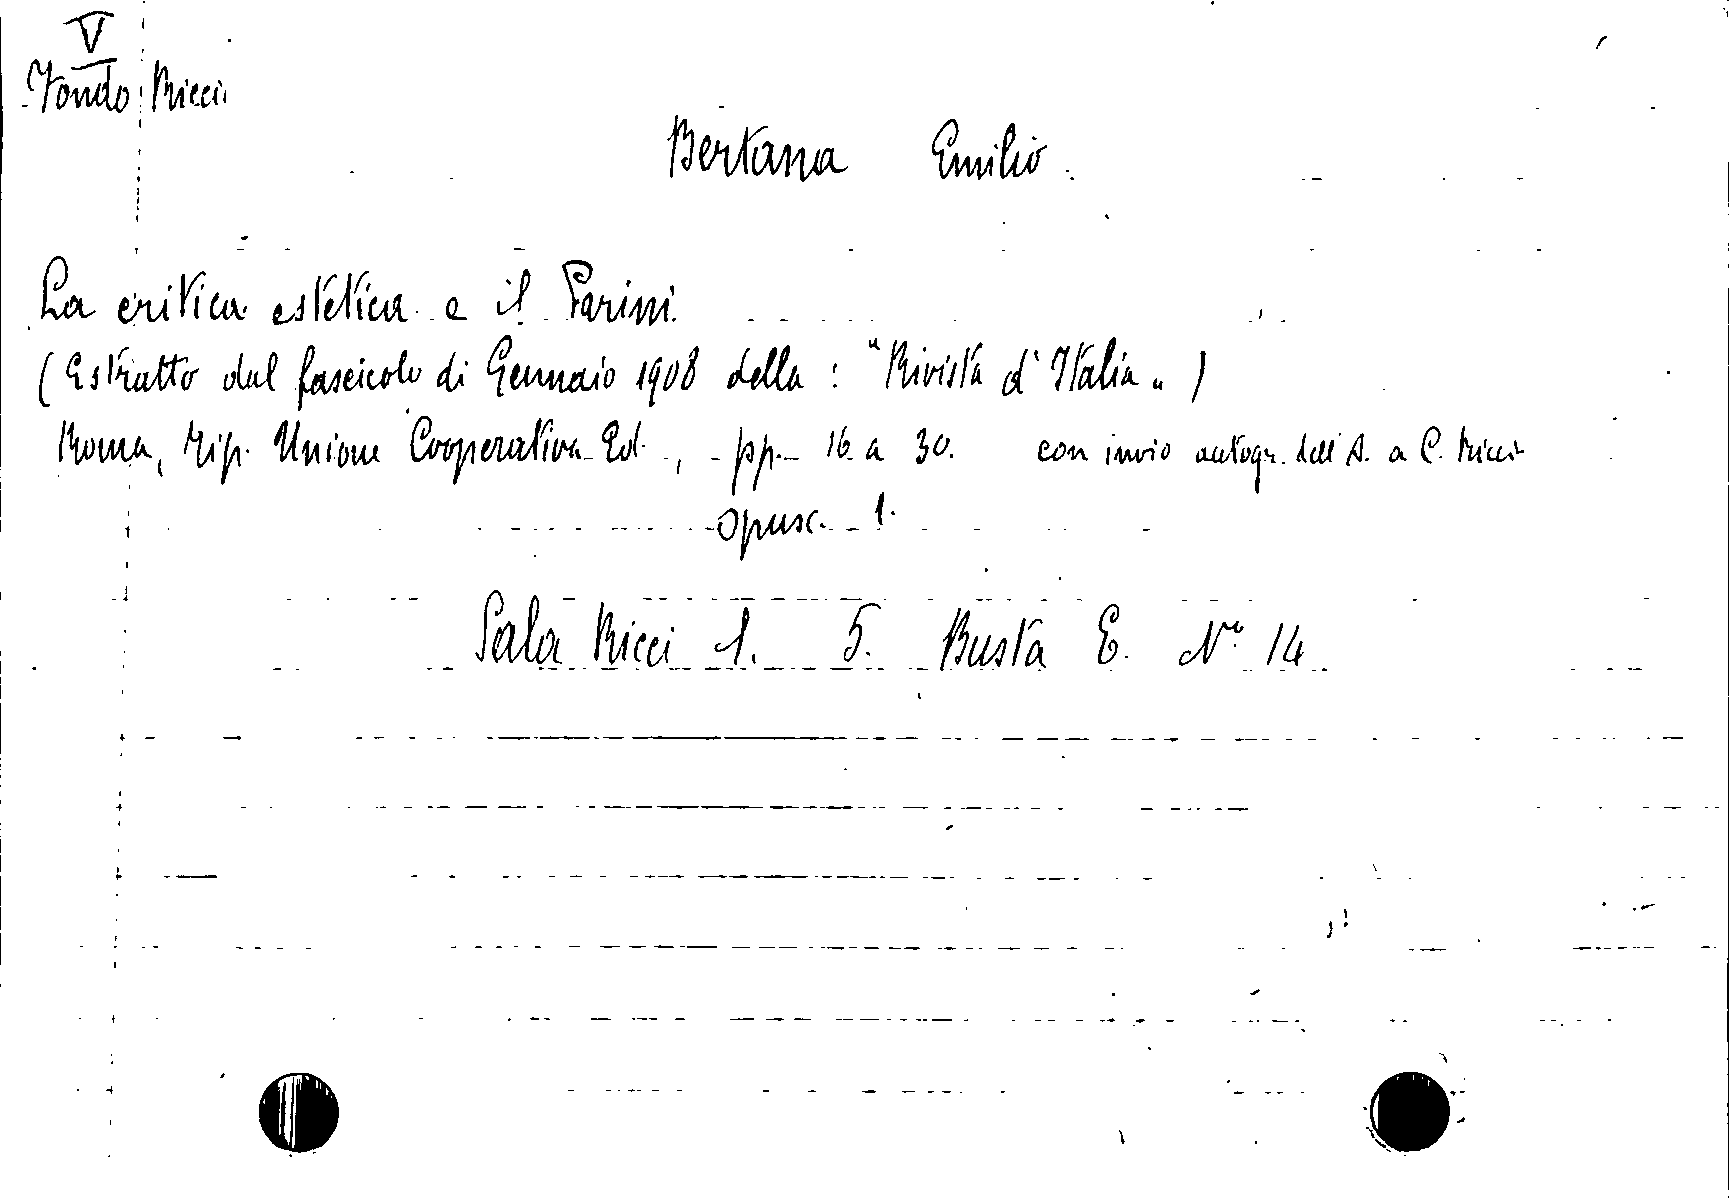 V
Fondo Ricci
Bertana Emilio.
La critica estetica e il Parini.
(Estratto dal fascicolo di Gennaio 1908 della: "Rivista d'Italia")
Roma, Tip. Unione Cooperativa Ed., pp. 16 a 30. con invio autogr. dell'A. a C. Ricci
opusc. 1.
Sala Ricci 1. 5. Busta E. N° 14